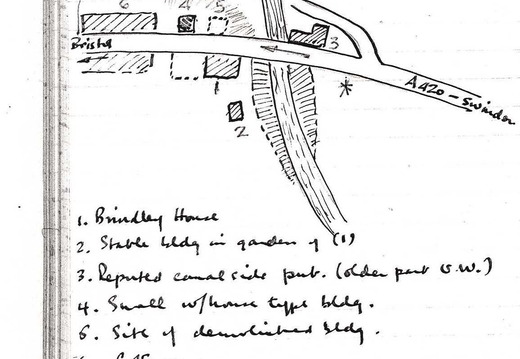 6
4
5
3
Bristol
A420 - Swindon
1
2
1. Brindley House
2. Stable bldg in garden of (1)
3. Reputed canalside pub. (older part S.W.)
4. Small w/house type bldg.
5. Site of demolished bldg.